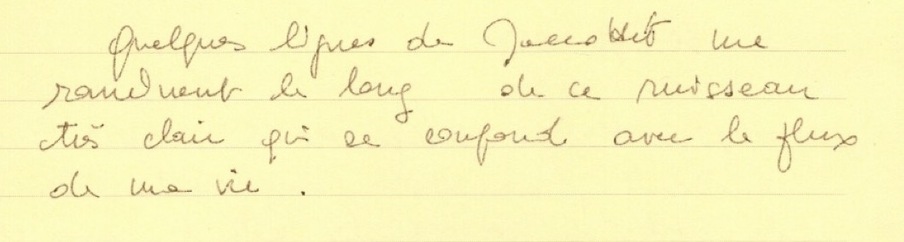 Quelques lignes de Jaccottet me
ramènent le long de ce ruisseau
très clair qui se confond avec le flux
de ma vie.